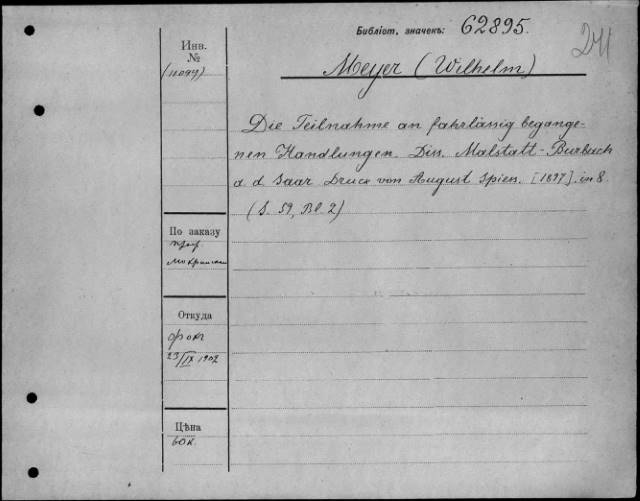 Библіот. значекъ: 62895.
211
Инв.
№
(11094)
Meyer (Wilhelm)
Die Teilnahme an fahrlässig begange-
nen Handlungen. Diss. Malstatt-Burbach
a. d. Saar Druck von August Spiess. [1897]. in 8.
(S. 59, Bl. 2)
По заказу
проф.
Откуда
фок
23/IX 1902
Цѣна
60 к.